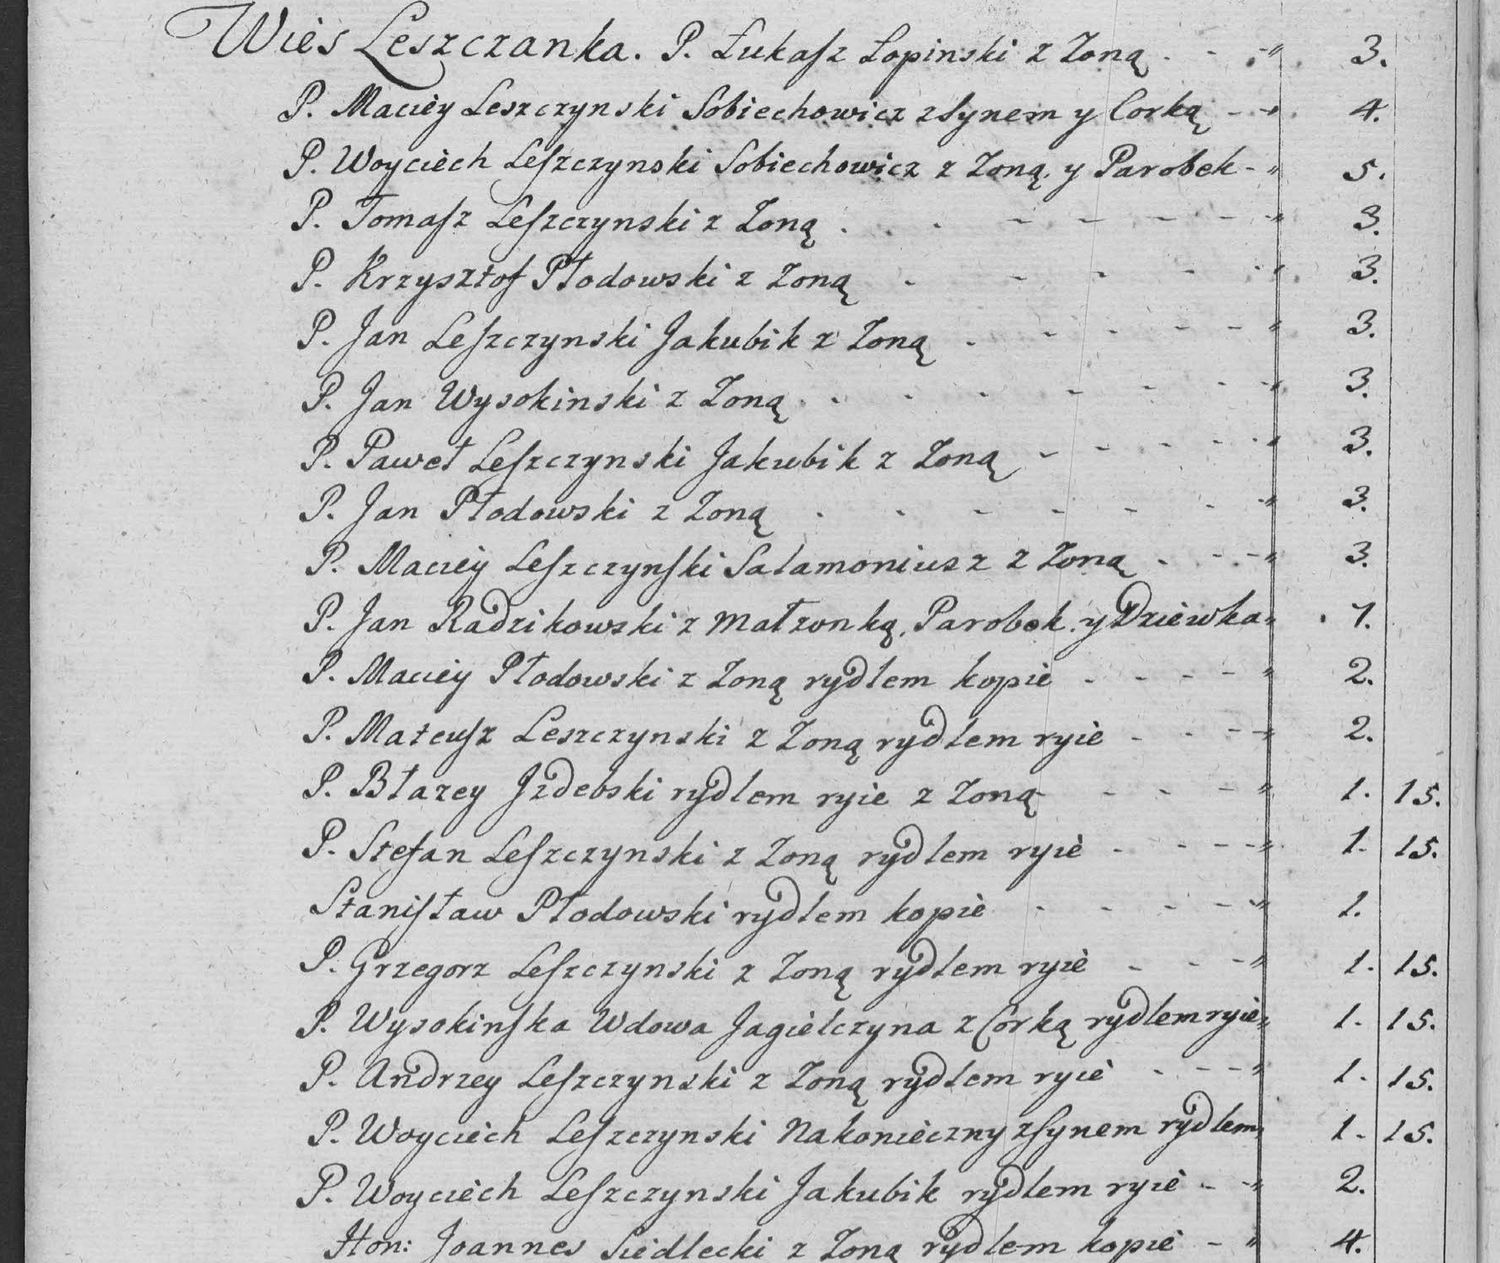 Wieś Leszczanka. P. Łukaſz Łopinski z Zoną . - -" . 3.
P. Maciey Leszczynski Sobiechowicz z ſynem y Corką - -" 4.
P. Woyciech Leſzczynski Sobiechowicz z Zoną y Parobek - " 5.
P. Tomaſz Leſzczynski z Zoną . . . - - - - -" 3.
P. Krzysztof Płodowski z Zoną . - - - ." . 3.
P. Jan Leſzczynski Jakubik z Zoną . - - - - " 3.
P. Jan Wysokinski z Zoną . . . . - - - -" 3.
P. Paweł Leſzczynski Jakubik z Zoną - - - - - " 3.
P. Jan Płodowski z Zoną . . - - - - -" 3.
P. Maciey Leſzczynſki Salamoniusz z Zoną . . - -" 3.
P. Jan Radzikowski z Małzonką, Parobek y Dziewka " . 7.
P. Maciey Płodowski z Zoną rydlem kopie - - - - " 2.
P. Mateuſz Leszczynski z Zoną rydlem ryie - - - -" 2.
P. Błazey Jzdebski rydlem ryie z Zoną - - - " 1. 15.
P. Stefan Leſzczynski z Zoną rydlem ryie - - - -" 1. 15.
Staniſław Płodowski rydlem kopie - - - - -" 1.
P. Grzegorz Leſzczynski z Zoną rydlem ryie - - -" 1. 15.
P. Wysokinſka Wdowa Jagiełczyna z Córką rydlem ryie " 1. 15.
P. Andrzey Leſzczynski z Zoną rydlem ryie - - -" 1. 15.
P. Woyciech Leſzczynski Nakonieczny z ſynem rydlem " 1. 15.
P. Woyciech Leſzczynski Jakubik rydlem ryie - -" 2.
Hon: Joannes Siedlecki z Zoną rydlem kopie - " 4.